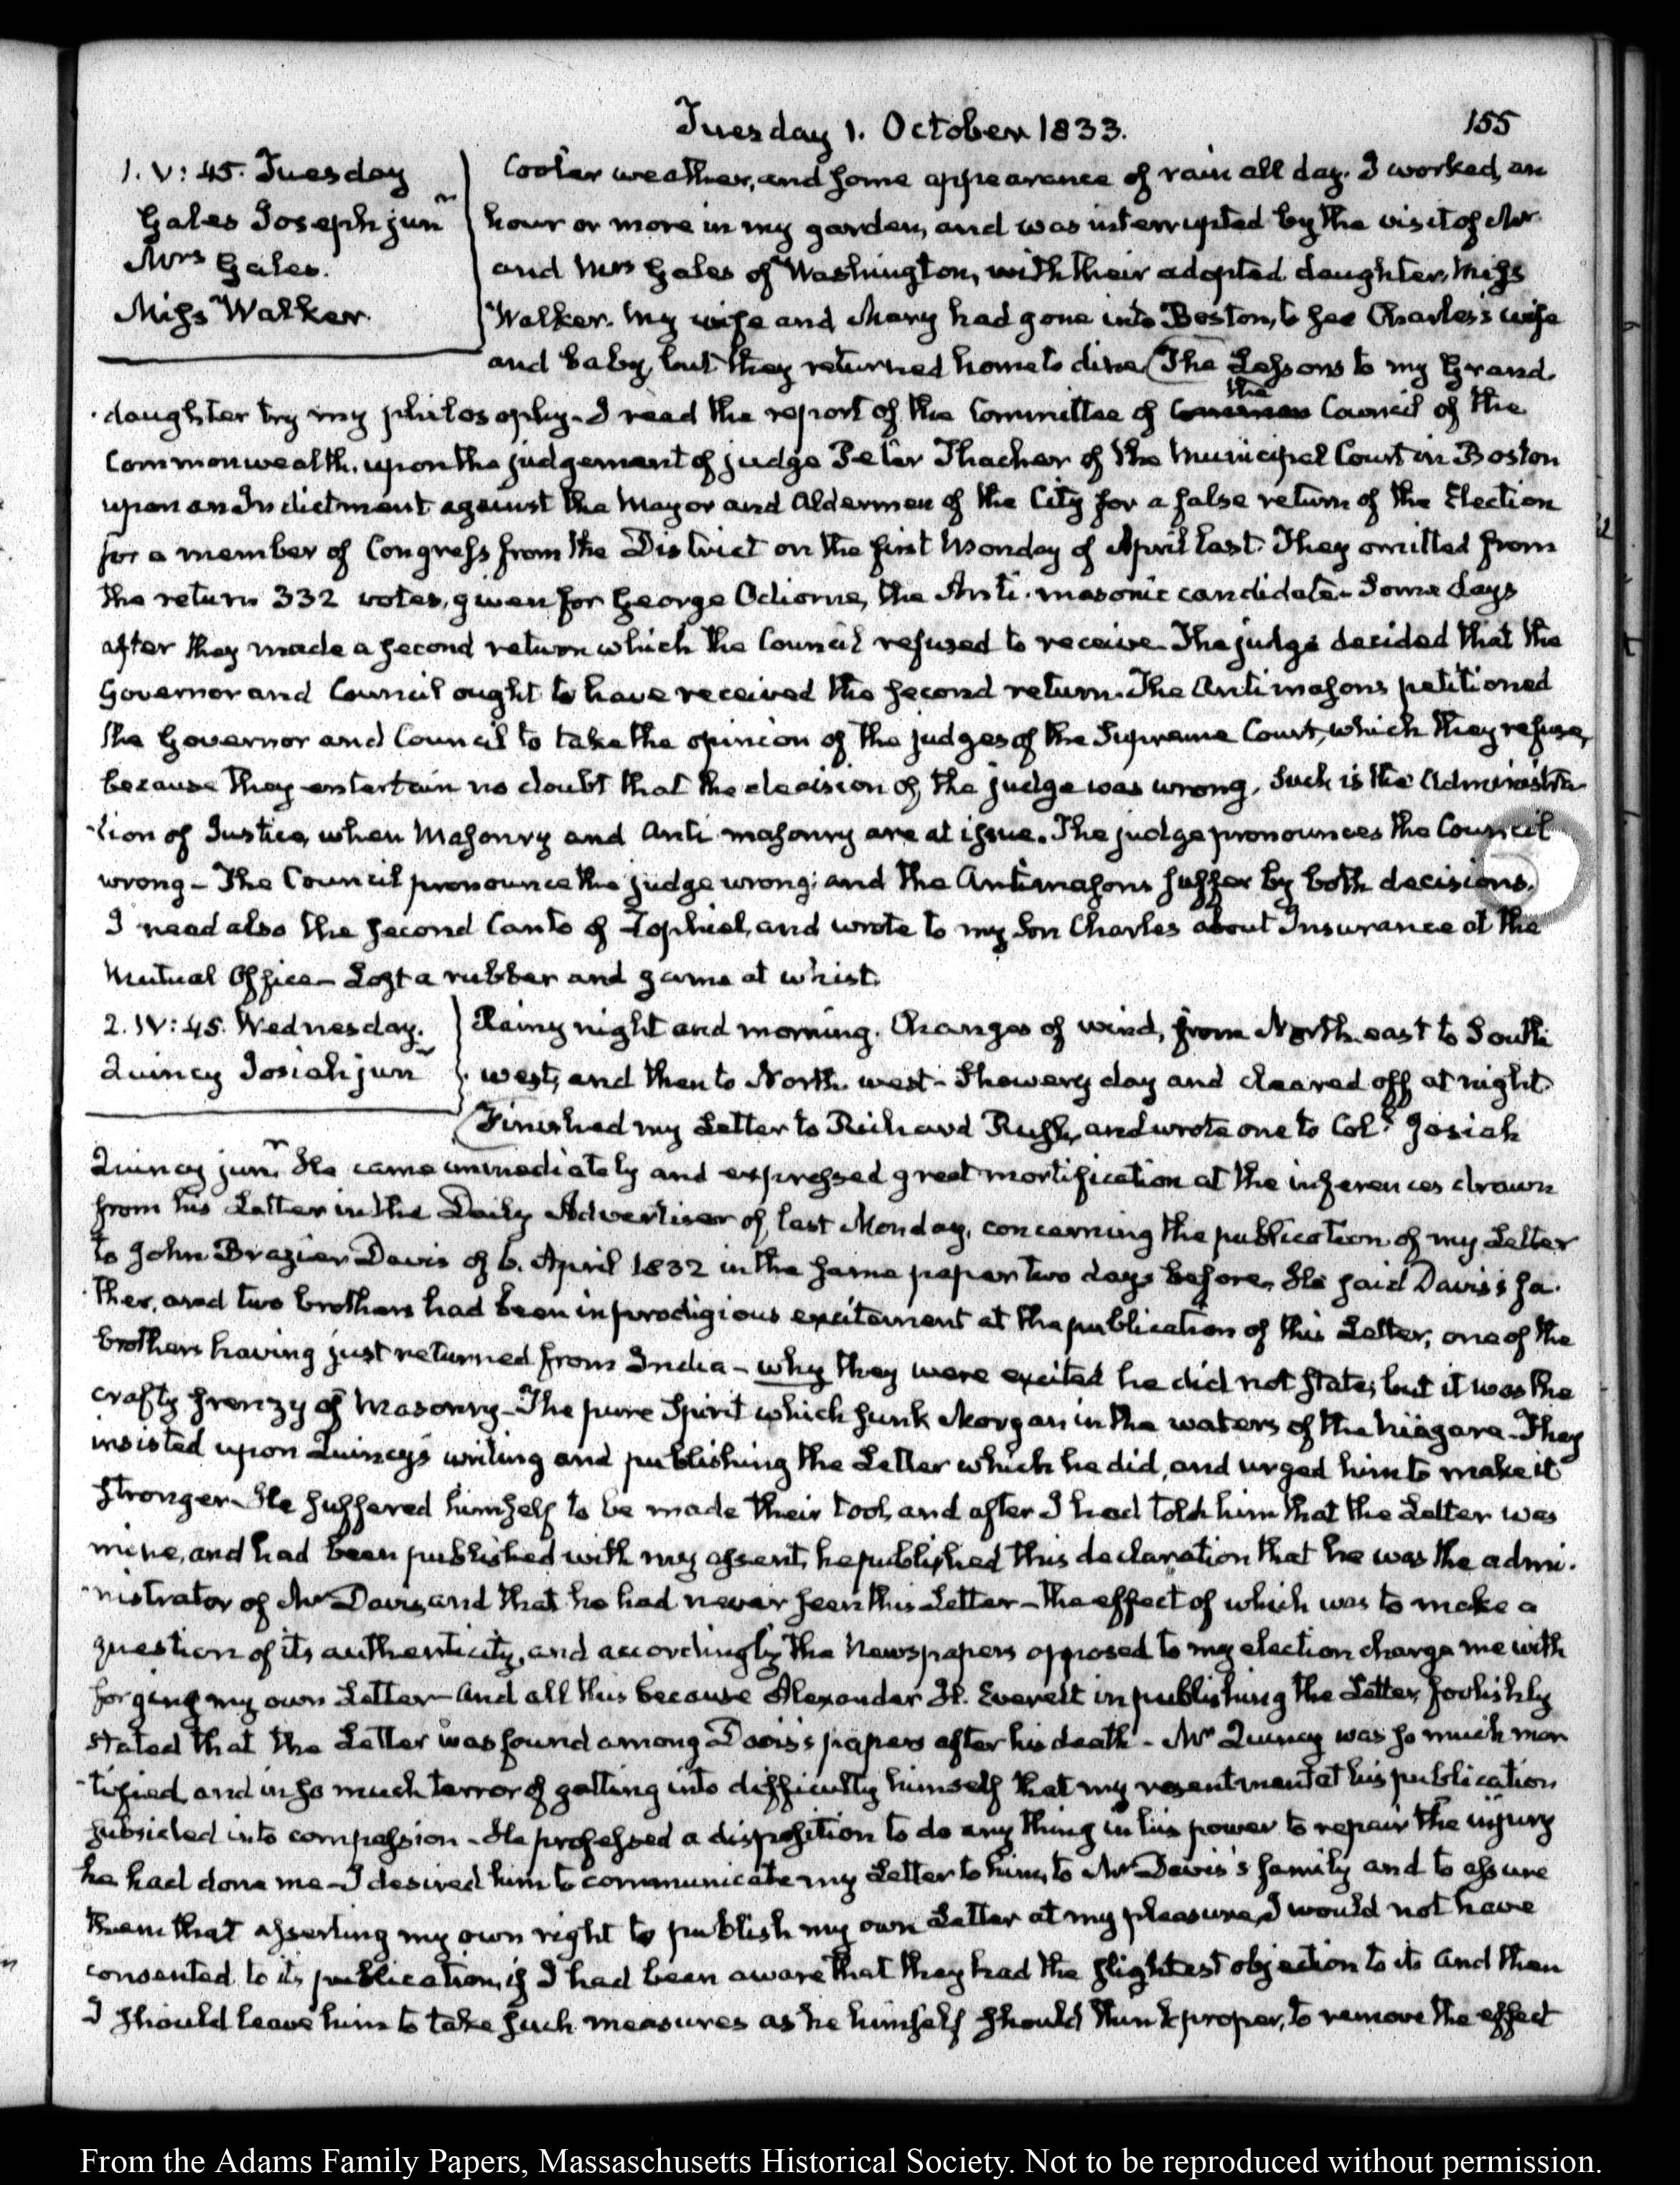 Tuesday 1. October 1833.
155
1. V: 45. Tuesday
Gales Joseph junr
Mrs Gales.
Miss Walker.
Cooler weather, and some appearance of rain all day. I worked, an
hour or more in my garden, and was interrupted by the visit of Mr
and Mrs Gales of Washington, with their adopted daughter, Miss
Walker. My wife and Mary had gone into Boston, to see Charles's wife
and baby, but they returned home to dine. The Lessons to my Grand-
daughter try my philosophy. I read the report of the Committee of the Council of the
Commonwealth, upon the judgement of judge Peter Thacher of the Municipal Court in Boston
upon an Indictment against the Mayor and Aldermen of the City for a false return of the Election
for a member of Congress from the District on the first Monday of April last. They omitted from
the return 332 votes, given for George Odiorne, the Anti-masonic candidate. Some days
after they made a second return which the Council refused to receive. The judge decided that the
Governor and Council ought to have received the second return. The Antimasons petitioned
the Governor and Council to take the opinion of the judges of the Supreme Court, which they refuse,
because they entertain no doubt that the decision of the judge was wrong. Such is the Administra-
-tion of Justice, when Masonry and Anti masonry are at issue. The judge pronounces the Council
wrong - The Council pronounce the judge wrong; and the Antimasons suffer by both decisions.
I read also the second Canto of Zophiel, and wrote to my Son Charles about Insurance at the
Mutual Office - Lost a rubber and game at whist.
2. IV: 45. Wednesday.
Quincy Josiah junr
Rainy night and morning. Changes of wind, from North east to South
west, and then to North west - Showery day and cleared off at night.
Finished my Letter to Richard Rush, and wrote one to Coll. Josiah
Quincy junr. He came immediately and expressed great mortification at the inferences drawn
from his Letter in the Daily Advertiser of last Monday, concerning the publication of my Letter
to John Brazier Davis of 6. April 1832 in the same paper two days before. He said Davis's fa-
-ther, and two brothers had been in prodigious excitement at the publication of this Letter, one of the
brothers having just returned from India - why they were excited he did not state; but it was the
crafty frenzy of Masonry - The pure Spirit which sunk Morgan in the waters of the Niagara - They
insisted upon Quincy's writing and publishing the Letter which he did, and urged him to make it
stronger - He suffered himself to be made their tool, and after I had told him that the Letter was
mine, and had been published with my assent, he published this declaration that he was the admi-
-nistrator of Mr Davis, and that he had never seen this Letter - the effect of which was to make a
question of its authenticity, and accordingly the Newspapers opposed to my election charge me with
forging my own Letter - and all this because Alexander H. Everett in publishing the Letter, foolishly
stated that the Letter was found among Davis's papers after his death - Mr Quincy was so much mor
-tified, and in so much terror of getting into difficulty himself that my resentment at his publication
subsided into compassion - He professed a disposition to do any thing in his power to repair the injury
he had done me - I desired him to communicate my Letter to him, to Mr Davis's family and to assure
them that asserting my own right to publish my own Letter at my pleasure, I would not have
consented to its publication, if I had been aware that they had the slightest objection to it. and then
I should leave him to take such measures as he himself should think proper, to remove the effect
From the Adams Family Papers, Massachusetts Historical Society. Not to be reproduced without permission.